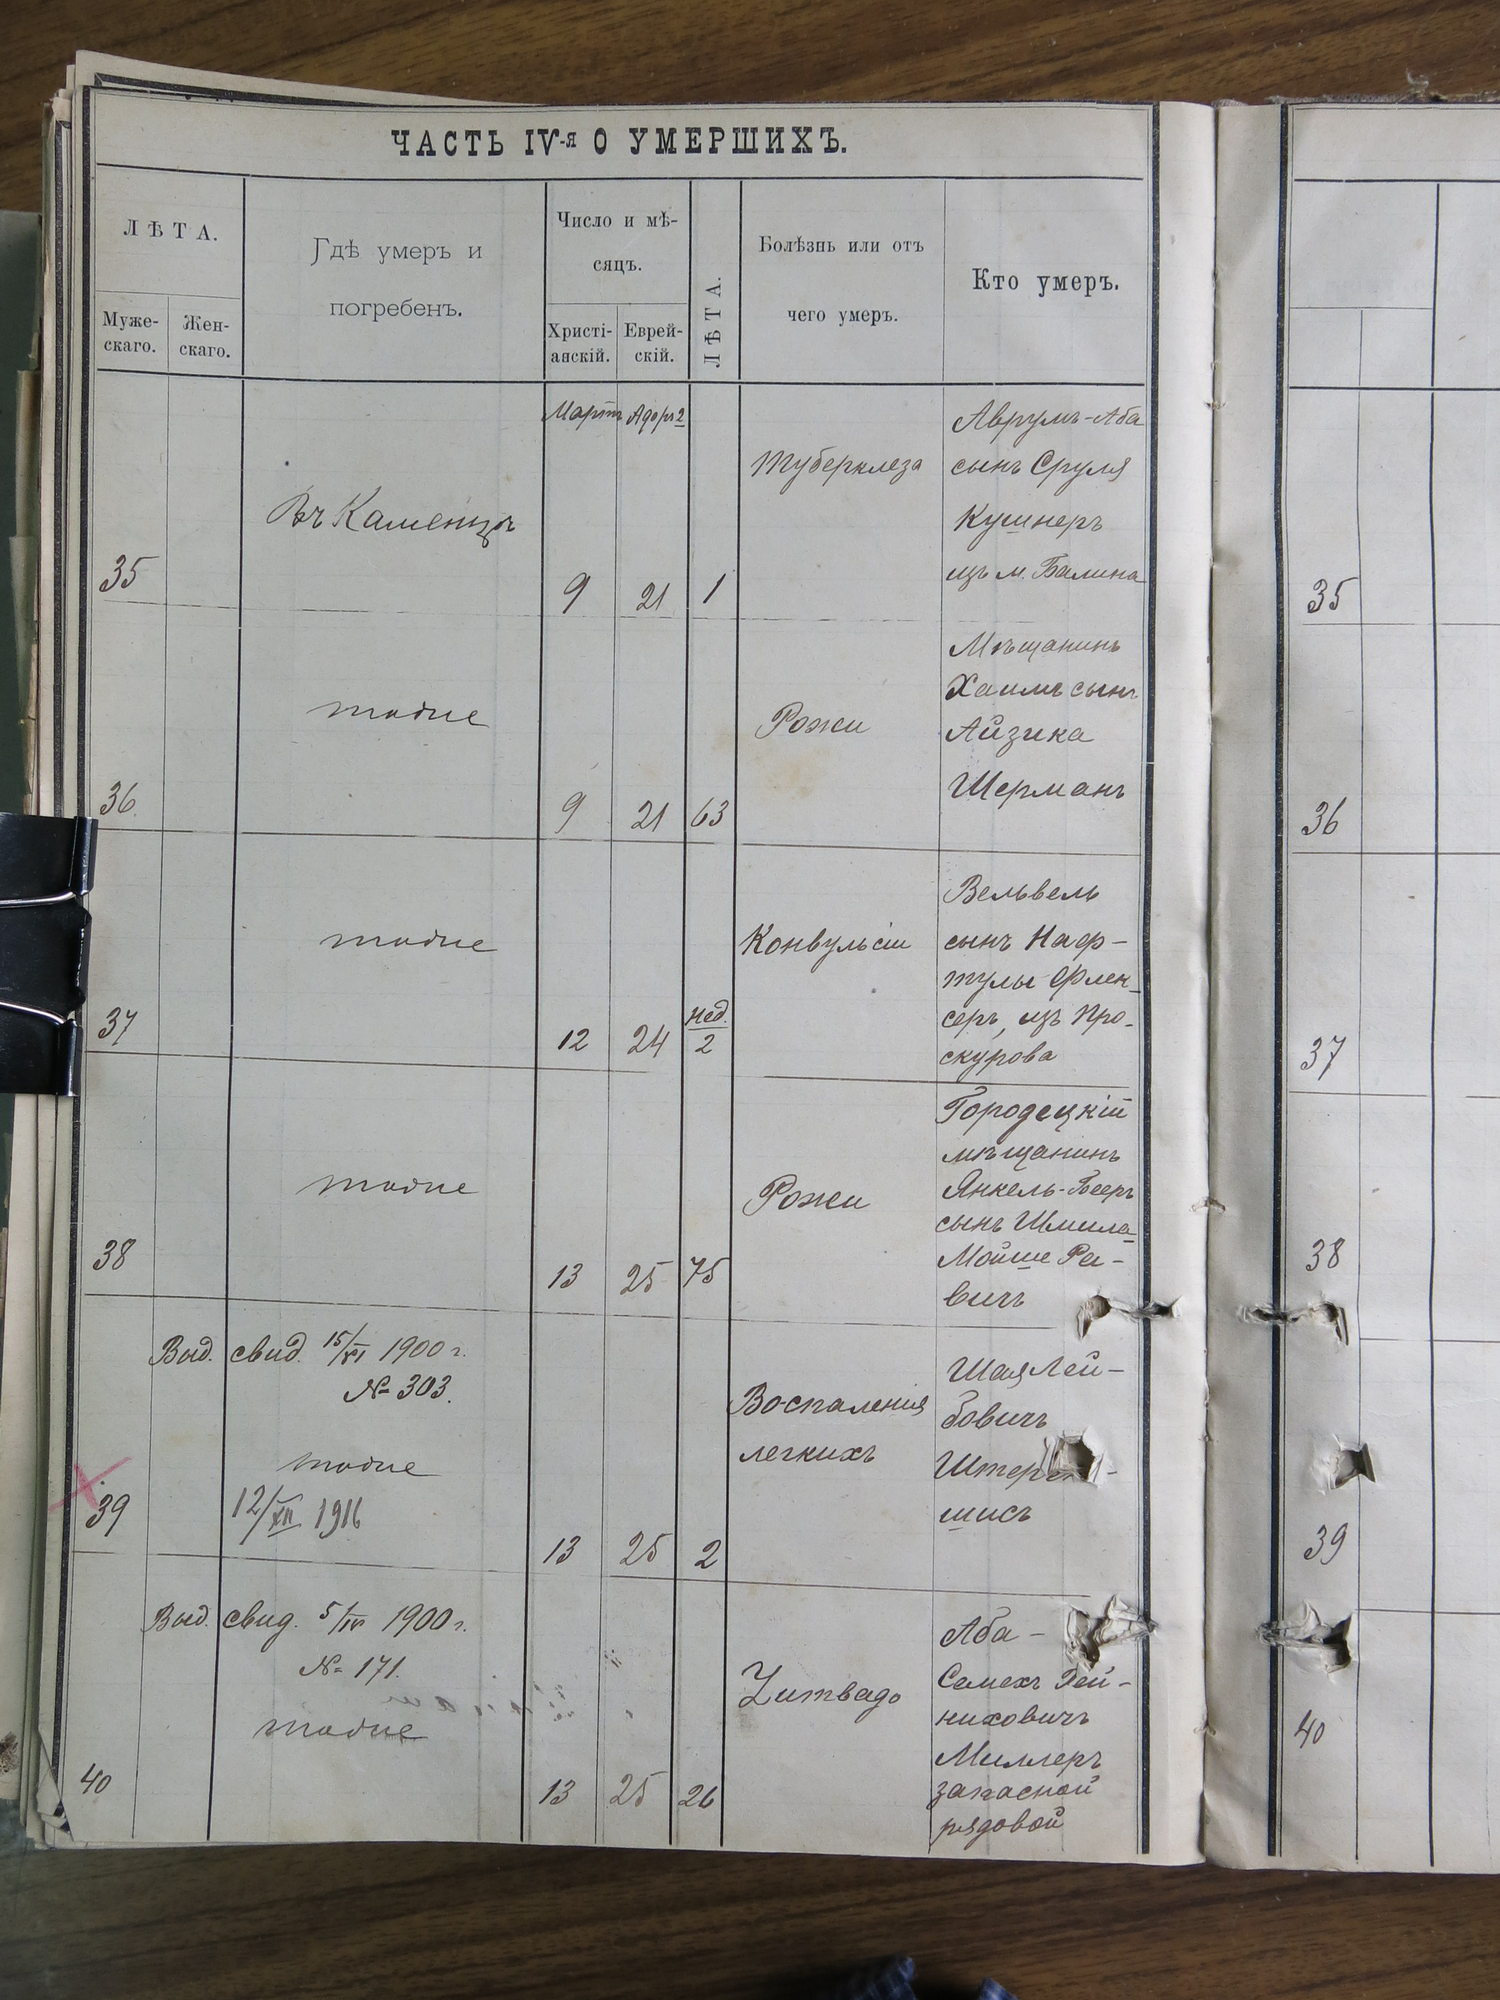 ЧАСТЬ IV-я О УМЕРШИХЪ.
ЛѢТА.
Муже-
скаго.
Жен-
скаго.
Гдѣ умеръ и
погребенъ.
Число и мѣ-
сяцъ.
Христі-
анскій.
Еврей-
скій.
ЛѢТА.
Болѣзнь или отъ
чего умеръ.
Кто умеръ.
Мартъ Адоръ 2
35
Въ Каменцѣ
9 21 1
Туберклеза
Аврумъ-Аба
сынъ Сруля
Кушнеръ
изъ м. Балина
35
36
тоже
9 21 63
Рожи
Мѣщанинъ
Хаимъ сынъ
Айзика
Шерманъ
36
37
тоже
12 24 нед. 2
Конвульсіи
Вельвель
сынъ Наф-
тулы Флек-
серъ, изъ Про-
скурова
37
38
тоже
13 25 75
Рожи
Городецкій
мѣщанинъ
Янкель-Бееръ
сынъ Шмила
Мойше Ра-
вичъ
38
Выд. свид. 15/VI 1900 г.
№ 303.
39
тоже
12/XII 1916
13 25 2
Воспаленія
легкихъ
Шая Лей-
бовичъ
шисъ
39
Выд. свид. 5/IV 1900 г.
№ 171.
40
тоже
13 25 26
Аба-
Семехъ Рей-
ниховичъ
Миллеръ
запасной
рядовой
40